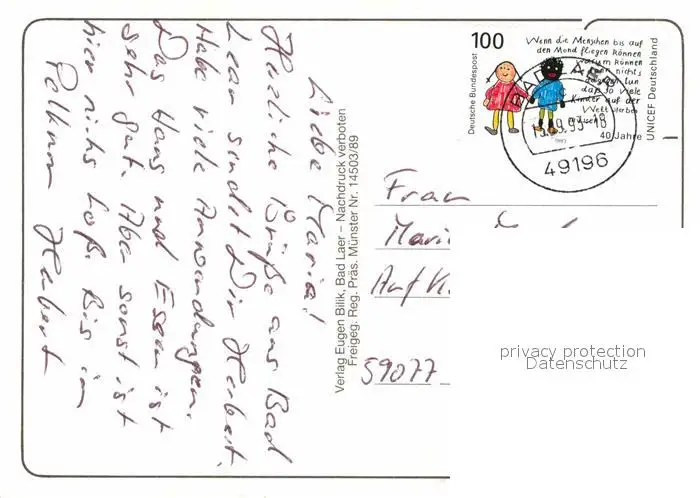 Liebe Maria!
Herzliche Grüße aus Bad
Laer sendet Dir Herbert.
Habe viele Anwendungen.
Das Haus und Essen ist
sehr gut. Aber sonst ist
hier nichts los. Bis im
Herbert
Verlag Eugen Bilik, Bad Laer – Nachdruck verboten
Freigeg. Reg. Präs. Münster Nr. 14503/89
100
Deutsche Bundespost
Wenn die Menschen bis auf
den Mond fliegen können
warum können
nichts
tun
daß so viele
Kinder auf der
Welt
40 Jahre
UNICEF Deutschland
1993
BAD LAER
93-18
49196
Frau
Auf
59077
privacy protection
Datenschutz